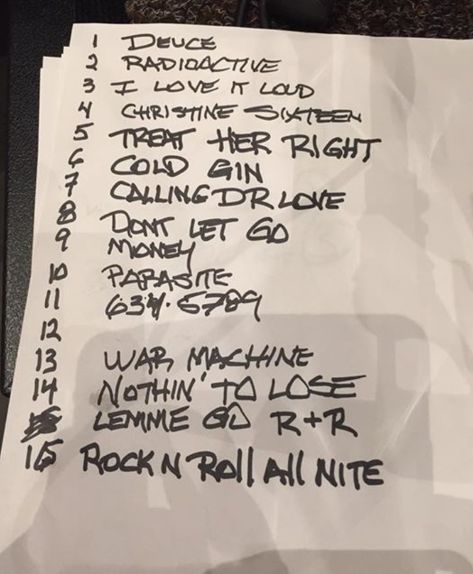 1 DEUCE
2 RADIOACTIVE
3 I LOVE IT LOUD
4 CHRISTINE SIXTEEN
5 TREAT HER RIGHT
6 COLD GIN
7 CALLING DR LOVE
8 DONT LET GO
9 MONEY
10 PARASITE
11 634.5789
12
13 WAR MACHINE
14 NOTHIN' TO LOSE
LEMME GO R+R
15 ROCK N Roll All NITE